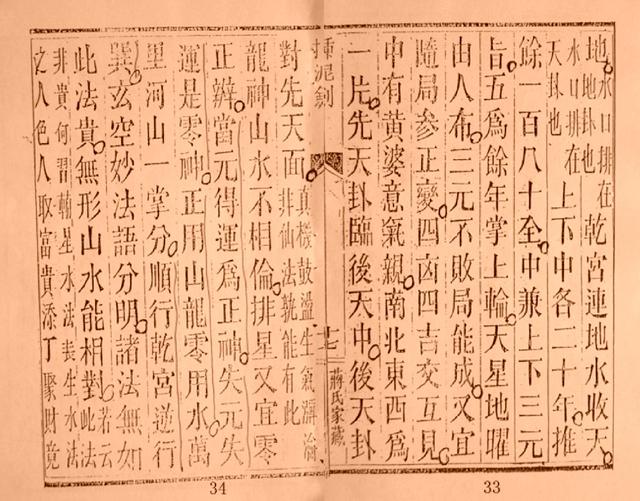 地水口排在乾宮連地水收天
地卦也
水口排在
天卦也上下中各二十年推
餘一百八十全中兼上下三元
旨五為餘年掌上輪天星地曜
由人布三元不敗局能成又宜
隨局參正變四凶四吉交互見
中有黃婆意氣親南北東西為
一片先天卦臨後天中後天卦
插泥劍
十七
蔣氏家藏
對先天面真機鼓盪生氣瀰淪
非仙法孰能有此
龍神山水不相倫排星又宜零
正辨當元得運為正神失元失
運是零神正用山龍零用水萬
里河山一掌分順行乾宮逆行
巽玄空妙法語分明諸法無如
此法貴無形山水能相對若云
此法
非貴何習輔星水法長生水法
之人色人取富貴添丁聚財竟
34
33